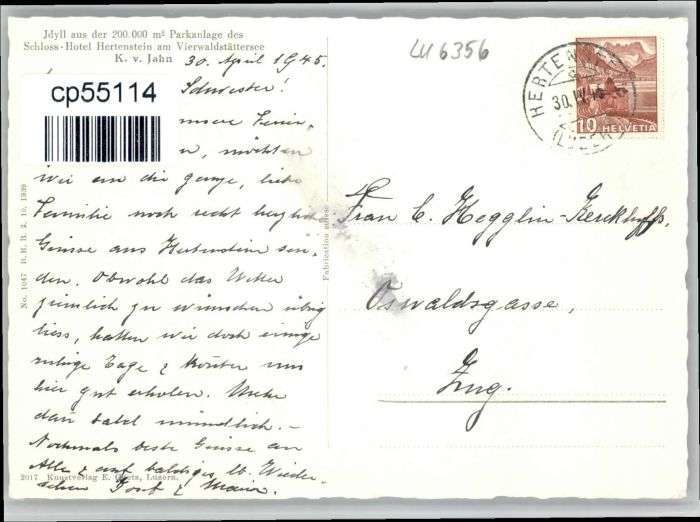 Jdyll aus der 200.000 m² Parkanlage des
Schloss-Hotel Hertenstein am Vierwaldstättersee
K. v. Jahn
30. April 1945.
Schwester!
cp55114
unsere Ferien,
möchten
wir an die ganze, liebe
Familie noch recht herzlich
Grüsse aus Hertenstein sen-
den. Obwohl das Wetter
ziemlich zu wünschen übrig
liess, hatten wir doch einige
ruhige Tage & konnten uns
hier gut erholen. Mehr
dann mündlich. -
Nochmals beste Grüsse an
Alle & auf baldiges lb. Wieder-
sehen Josf & Maria.
2017 Kunstverlag E. Goetz, Luzern.
No. 1047 B. R. B. 2. 10. 1939
Fabrication suisse
LU 6356
HERTENSTEIN
30.IV.45
(LUZERN)
10 HELVETIA
Frau C. Hegglin-Kerckhoffs,
Oswaldsgasse,
Zug.